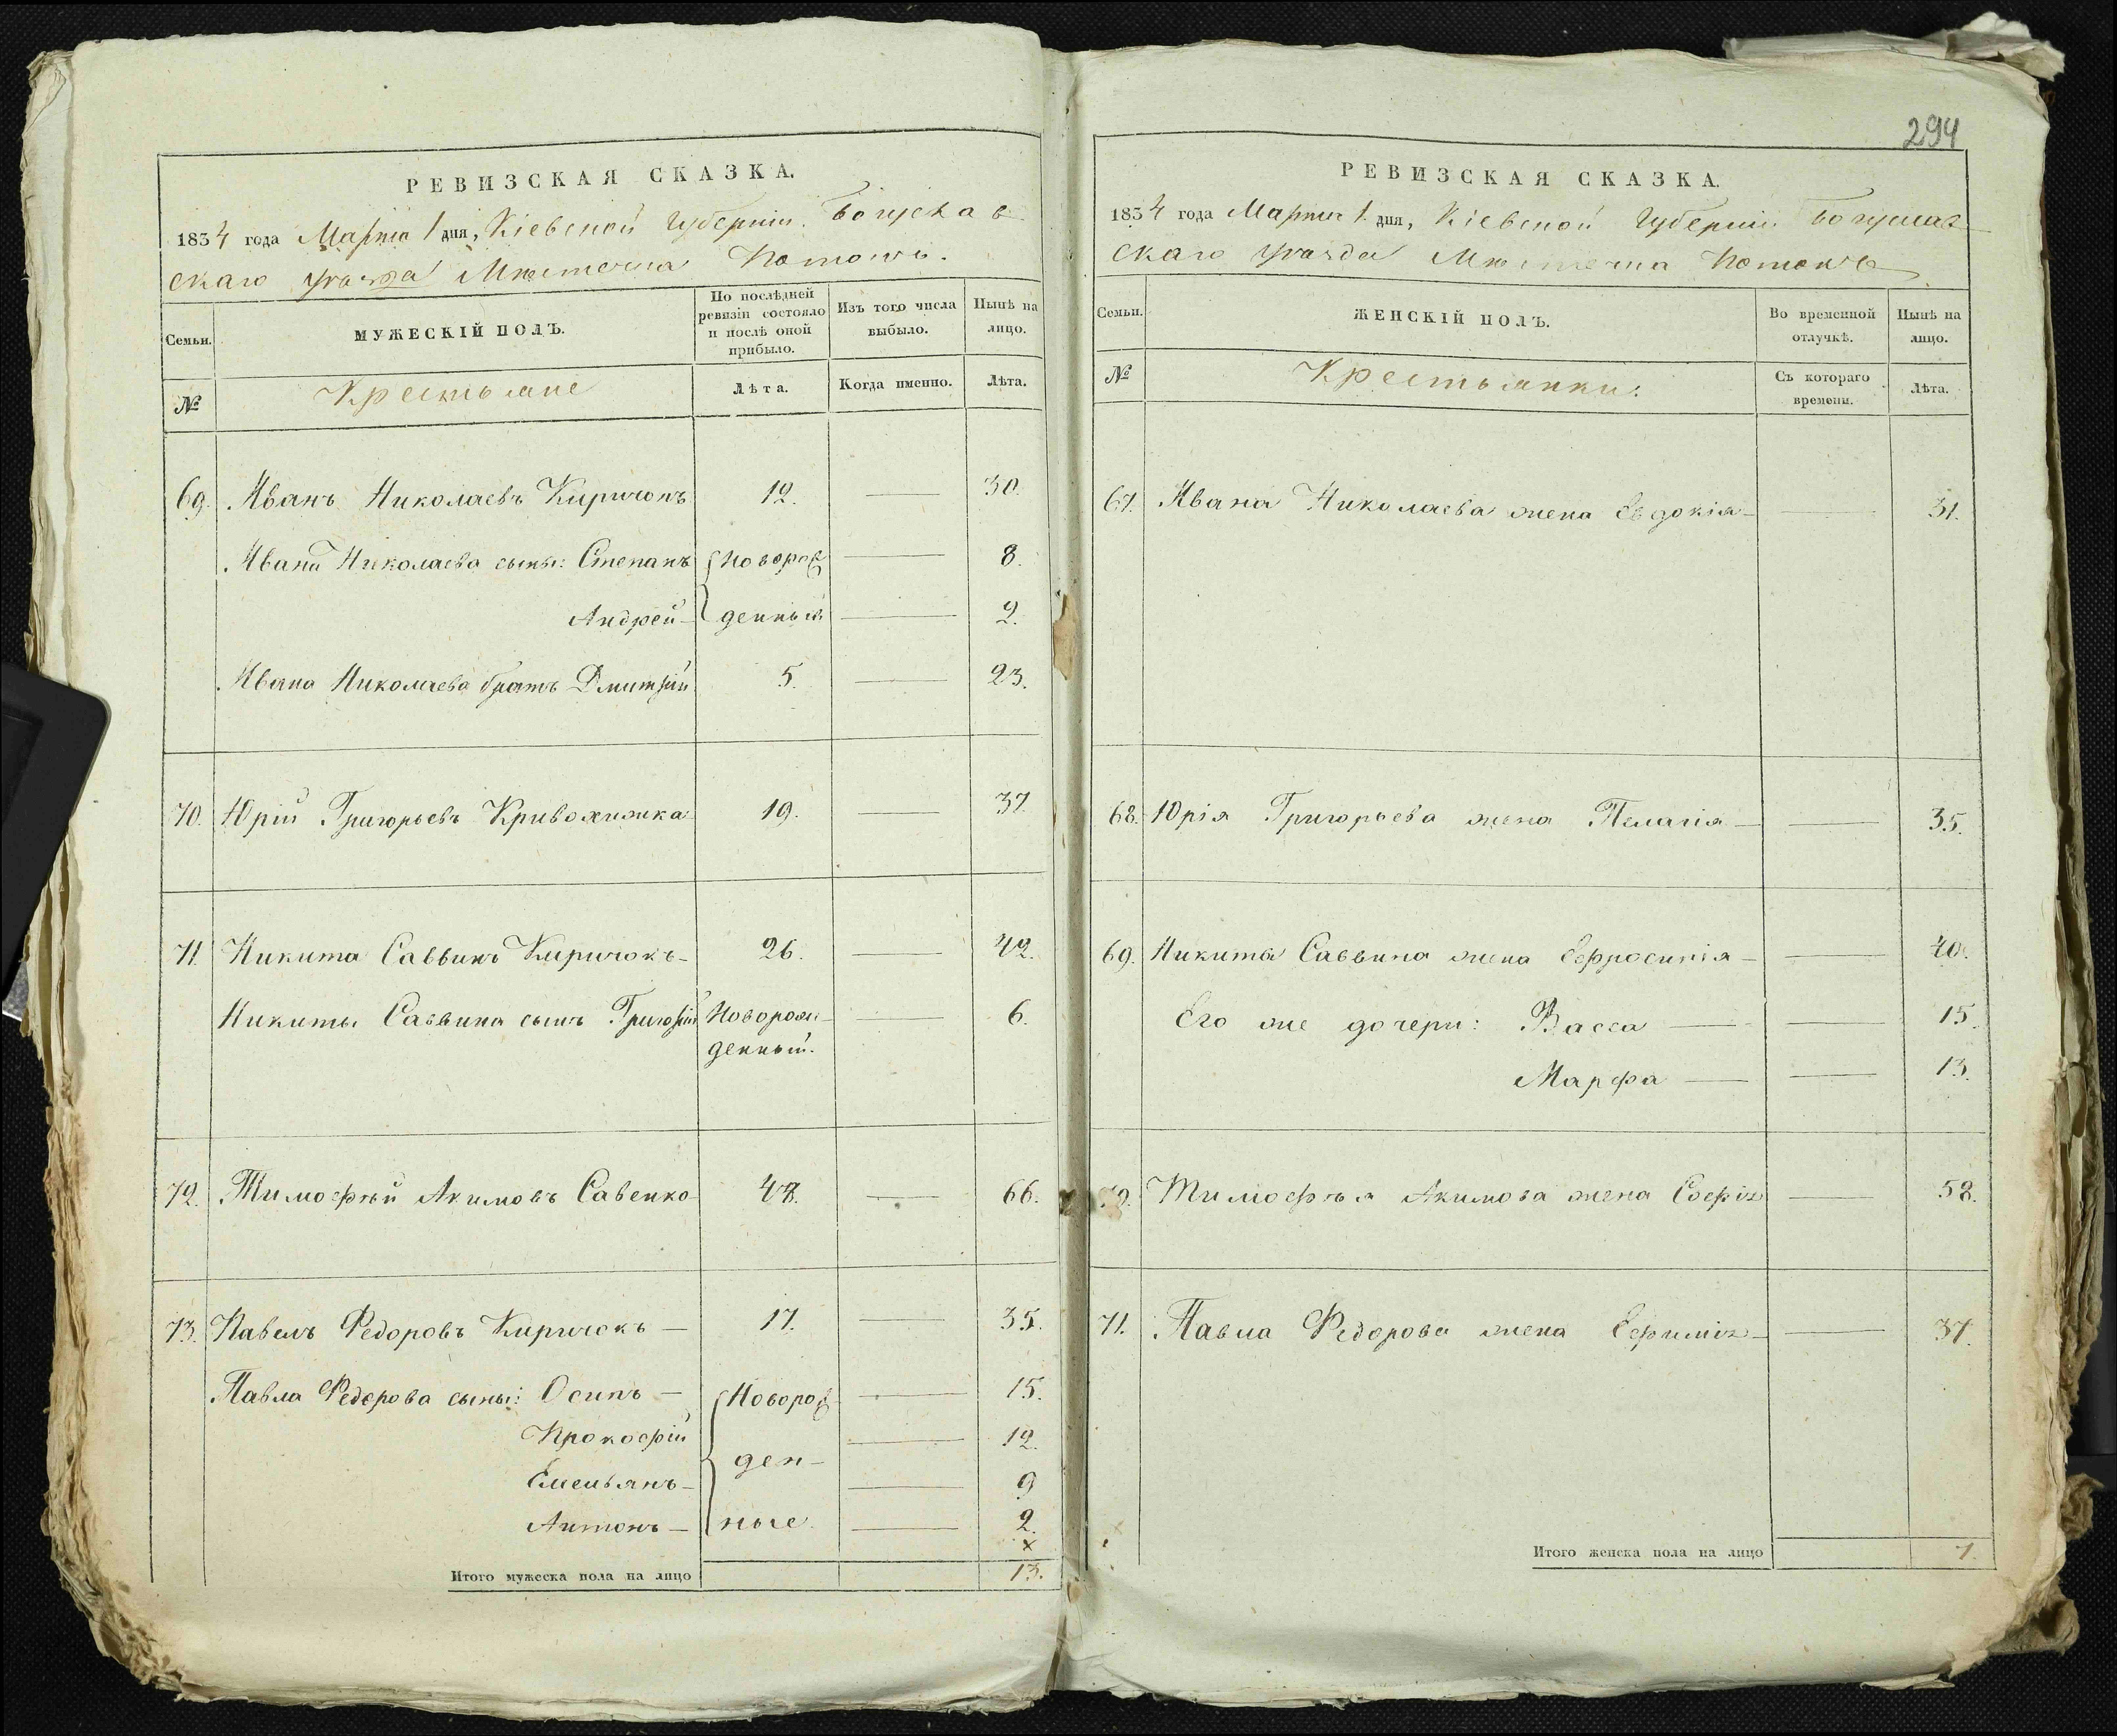 294
РЕВИЗСКАЯ СКАЗКА.
1834 года Марта 1 дня, Кіевской Губерніи Богуслав
скаго уѣзда Мѣстечка Потокъ.
Семьи.
МУЖЕСКІЙ ПОЛЪ.
По послѣдней
ревизіи состояло
и послѣ оной
прибыло.
Изъ того числа
выбыло.
Нынѣ на
лицо.
№
Крестьяне
Лѣта.
Когда именно.
Лѣта.
69. Иванъ Николаевъ Киричокъ 12. — 30.
Ивана Николаева сыны: Степанъ Новорож — 8.
Андрей — денный — 2.
Ивана Николаева братъ Дмитрій 5. — 23.
70. Юрій Григорьевъ Кривохижка 19. — 37.
71. Никита Саввинъ Киричокъ — 26. — 42.
Никиты Саввина сынъ Григорій Новорож — 6.
денный.
72. Тимофѣй Акимовъ Савенко 48. — 66.
73. Павелъ Федоровъ Киричокъ — 17. — 35.
Павла Федорова сыны: Осипъ — Новорож — 15.
Прокофій — 12.
ден —
Емельянъ — 9
Антонъ — ные. — 2.
x
Итого мужеска пола на лицо 13.
РЕВИЗСКАЯ СКАЗКА.
1834 года Марта 1. дня, Кіевской Губерніи Богуслав
скаго уѣзда Мѣстечка Потокъ
Семьи.
ЖЕНСКІЙ ПОЛЪ.
Во временной
отлучкѣ.
Нынѣ на
лицо.
№
Крестьянки.
Съ котораго
времени.
Лѣта.
67. Ивана Николаева жена Евдокія — 31.
68. Юрія Григорьева жена Пелагія — 35.
69. Никита Саввина жена Ефросинія — 40.
Его же дочери: Васса — 15.
Марфа — 13.
70. Тимофѣя Акимова жена Софія — 58.
71. Павла Федорова жена Ефимія — 37.
Итого женска пола на лицо 7.